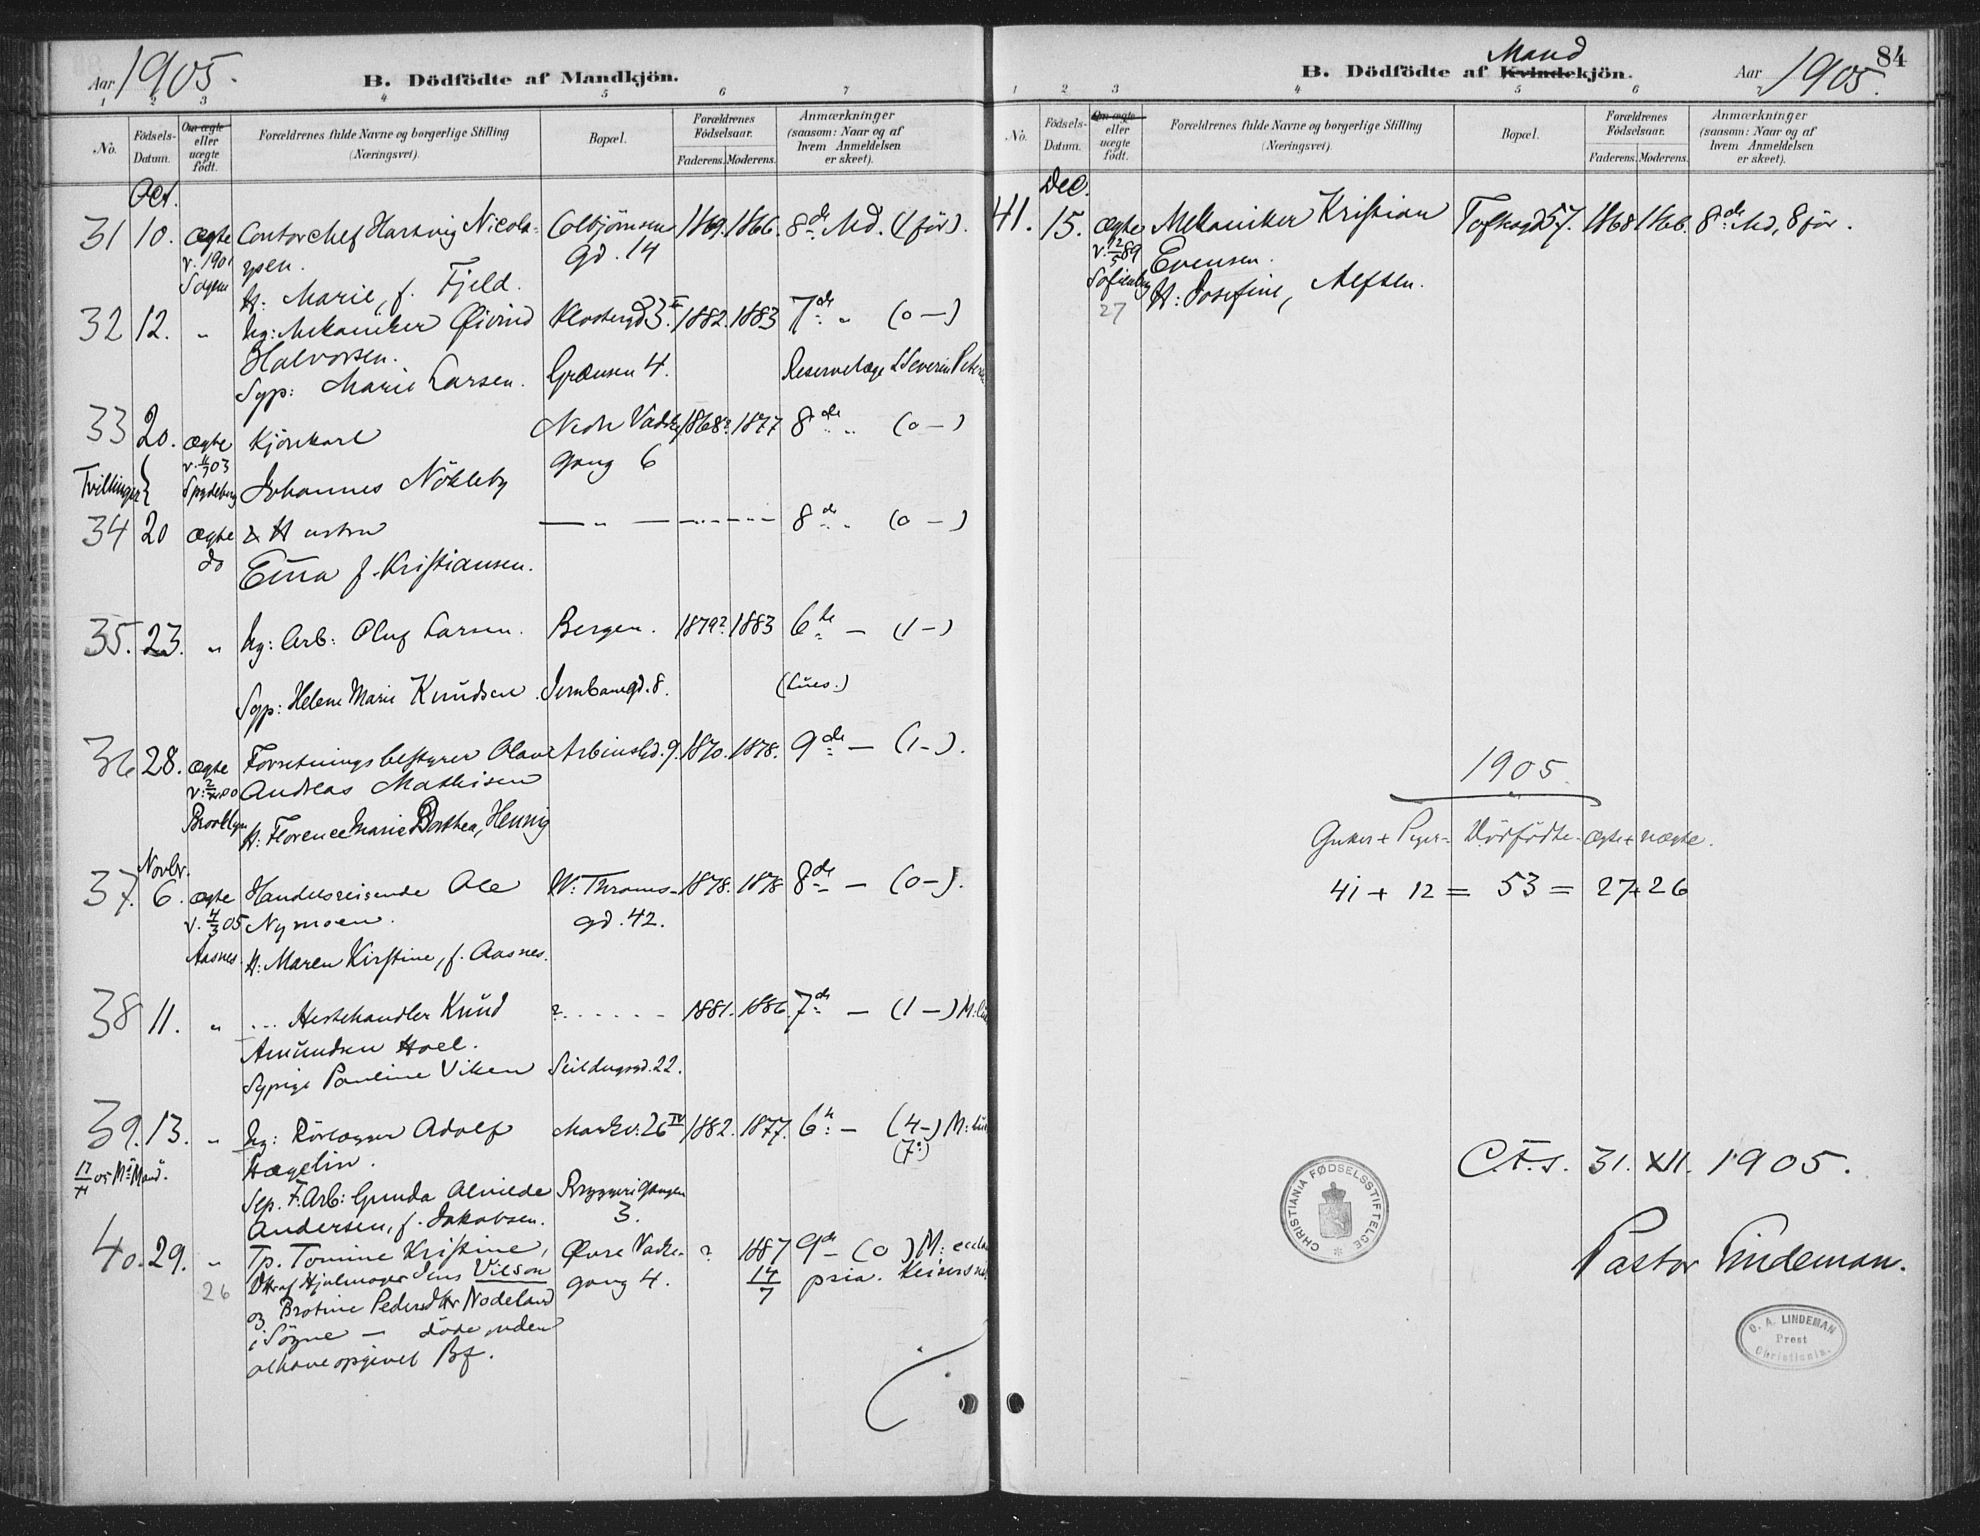 Aar 1905.
B. Dödfödte af Mandkjön.
1 2 3 4 5 6 7
No.
Födsels-
Datum.
Om ægte
eller
uægte
födt.
Forældrenes fulde Navne og borgerlige Stilling
(Næringsvei).
Bopæl.
Forældrenes
Födselsaar.
Faderens. Moderens.
Anmærkninger
(saasom: Naar og af
hvem Anmeldelsen
er skeet).
Oct.
31 10. ægte Contorchef Hartvig Nicola- Colbjørnsen 1869. 1866. 8de Md. (
v. 1901 ysen. gd. 14
H: Marie, f. Fjeld.
32 12. " Ug: Mekaniker Øivind Klostergd 3 1882. 1883 7de " (0 —)
Halvorsen.
Syp: Marie Larsen. Grænsen 4. Reservelæge Severin
33 20. ægte Kjörekarl Nedre Vadsk 1868? 1877 8de " (0 —)
v. 03 gang 6
Tvillinger Spydeberg Johannes Nökleby
34 20 ægte & Hustru — " — 8de " (0 —)
do Emma f. Kristiansen.
35. 23. " Ug: Arb: Oluf Larsen. Bergen. 1879? 1883 6te — (1 —)
Syp: Helene Marie Knudsen. Jernbanegd. 8. (Lues.)
36 28. ægte Forretningsbestyrer Olav Arbinsgd. 9. 1870. 1878. 9de — (1 —).
Andreas Mathisen
Brooklyn H. Florence Marie Dorthea, Hennig
Novbr.
37. 6. ægte Handelsreisende Ole W. Thranes- 1878. 1878 8de — (0 —).
v. 4/3 05 Nymoen. gd. 42.
Aasnes. H: Maren Kirstine, f. Aasnes.
38 11. " ... Hestehandler Knud ? . . . . . 1881. 1886. 7de — (1 —)
Amundsen Hoel.
Sypige Pauline Viken Seildugsgd. 22.
39. 13. " Ug: Rörlægger Adolf Markv. 26 IV 1882. 1877. 6te — (4 —)
Hægelin. (7:)
Sep. F. Arb: Gunda Alvilde Bryggerigangen
Andersen, f. Jakobsen. 3.
40. 29. " Tp. Tomine Kristine, Øvre Vadsk- ? 1887 9de — (0 ) M:
26 Dtr af Hjulmager Jens Vilson gang 4. 14/7
og Brotine Pedersdtr Nodeland
i Sögne — döde uden
at have opgivet Bf.
B. Dödfödte af Kvindekjön.
Mand
Aar 1905.
84
1 2 3 4 5 6
No.
Födsels-
Datum.
Om ægte
eller
uægte
födt.
Forældrenes fulde Navne og borgerlige Stilling
(Næringsvei).
Bopæl.
Forældrenes
Födselsaar.
Faderens. Moderens.
Anmærkninger
(saasom: Naar og af
hvem Anmeldelsen
er skeet).
Dec.
41. 15. ægte Mekaniker Kristian 57. 1868 1866. 8de Md,
v. 12/5 89 Evensen.
Sofienberg H: Josefine, Alfsen.
27
1905
Dödfödte = ægte + uægte.
41 + 12 = 53 = 27 + 26
C.F.S. 31. XII. 1905.
CHRISTIANIA FØDSELSSTIFTELSE
Pastor Lindeman.
O. A. LINDEMAN
Prest
Christiania.